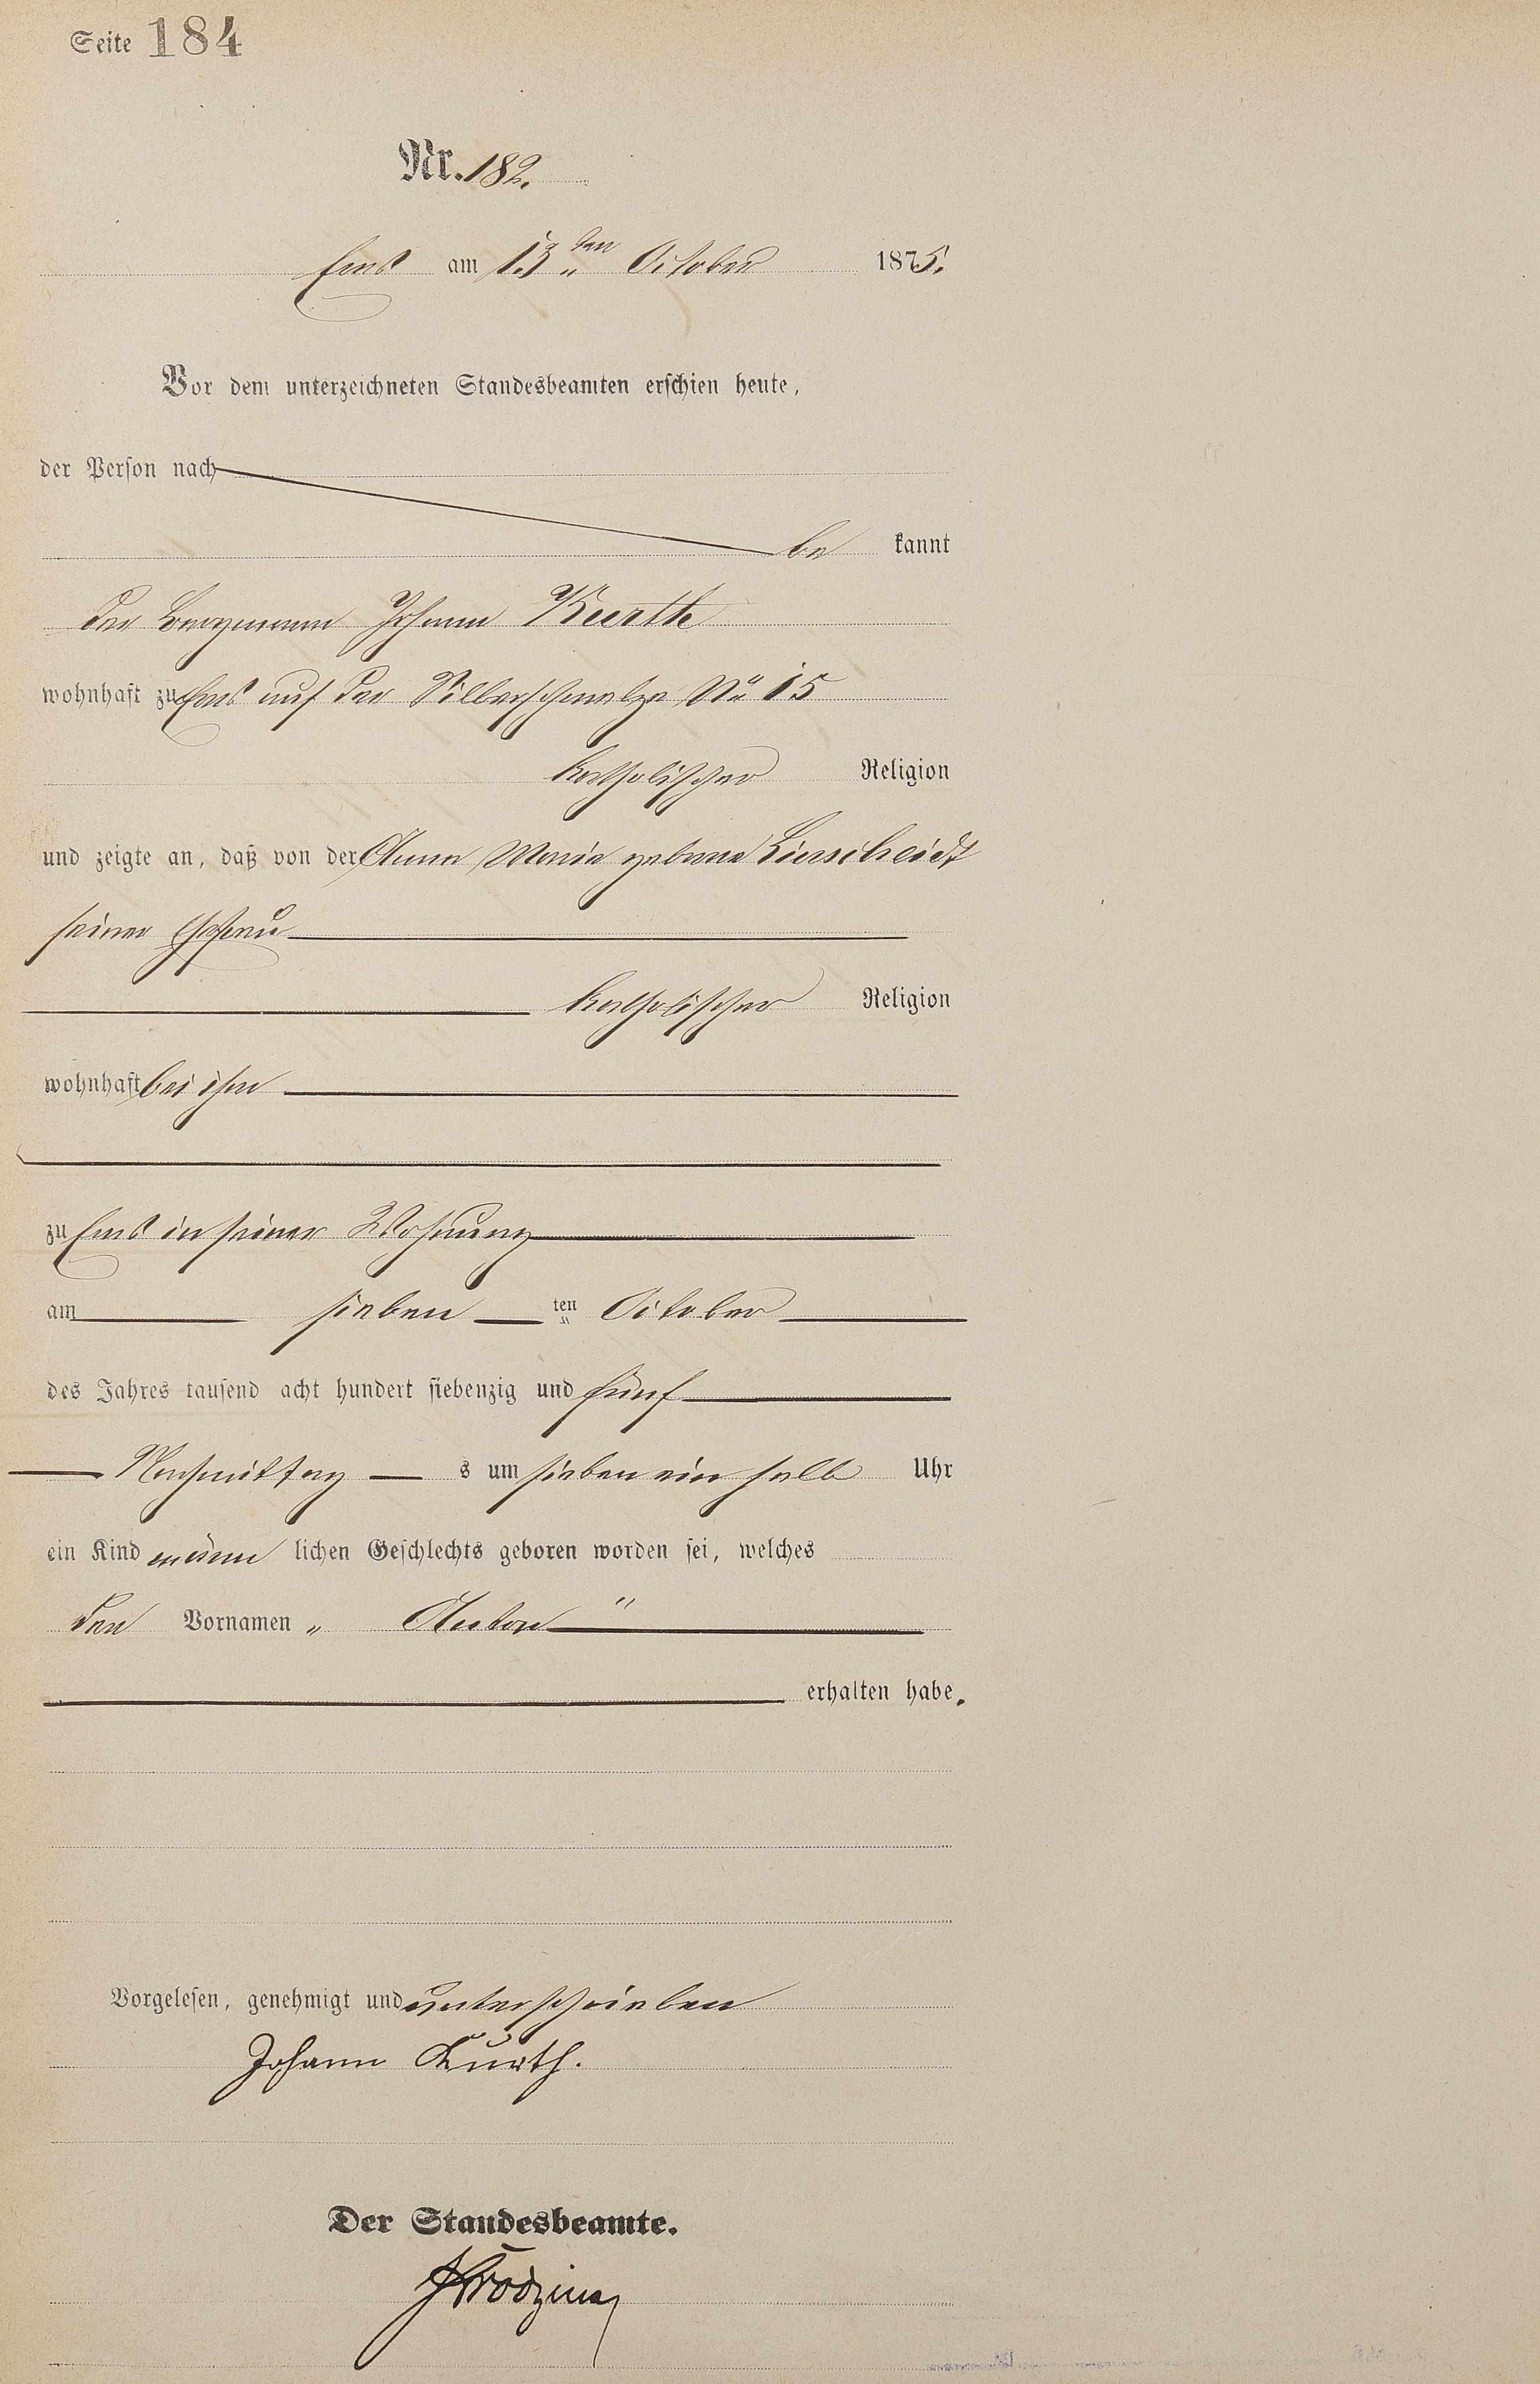 Seite 184
Nr. 182.
Ems am 13ten October 1875.
Vor dem unterzeichneten Standesbeamten erschien heute,
der Person nach
be kannt
der Bergmann Johann Kurth
wohnhaft zu Ems auf der Silberschmelze No 15
katholischer Religion
und zeigte an, daß von der Anna Maria geborne Linscheidt
seiner Ehefrau
katholischer Religion
wohnhaft bei ihm
zu Ems in seiner Wohnung
am sieben ten October
des Jahres tausend acht hundert siebenzig und fünf
Nachmittag s um sieben ein halb Uhr
ein Kind männ lichen Geschlechts geboren worden sei, welches
den Vornamen „ Anton "
erhalten habe.
Vorgelesen, genehmigt und unterschrieben
Johann Kurth.
Der Standesbeamte.